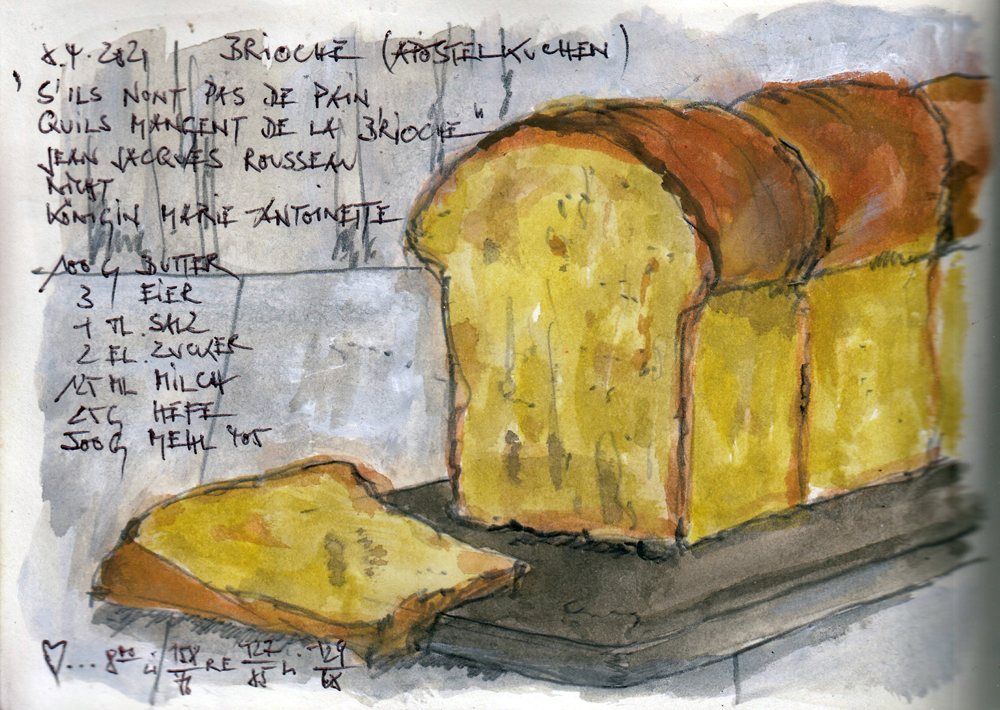 8.4.2021 BRIOCHE (APOSTELKUCHEN)
"S'ILS NONT PAS DE PAIN
QUILS MANGENT DE LA BRIOCHE"
JEAN JACQUES ROUSSEAU
NICHT
KÖNIGIN MARIE ANTOINETTE
100 G BUTTER
3 EIER
1 TL SALZ
2 EL ZUCKER
125 ML MILCH
25 G HEFE
500 G MEHL 405
♡... 8 00 Li 158/76 RE 127/85 Li 129/68